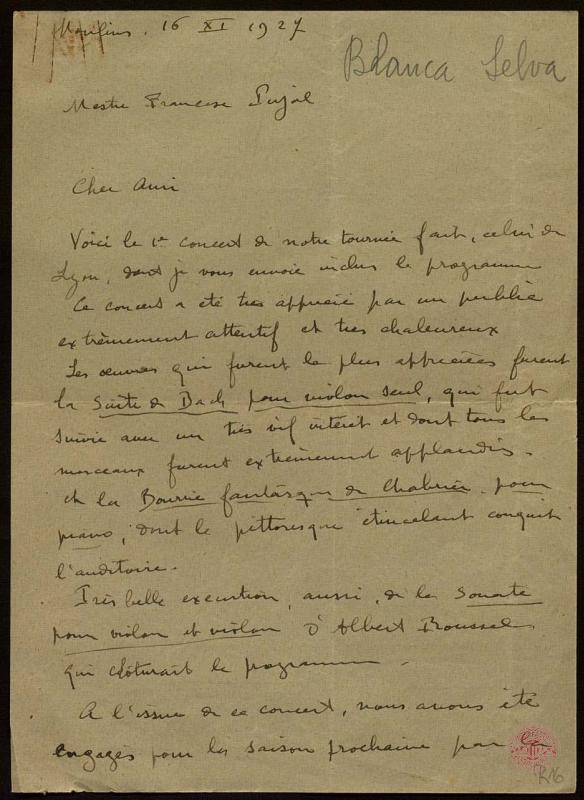 Moulins, 16 XI 1927
Blanca Selva
Mestre Francesc Pujol
Cher Ami
Voici le 1er concert de notre tournée fait, celui de
Lyon, dont je vous envoie inclus le programme
Ce concert a été très apprécié par un public
extrêmement attentif et très chaleureux
Les œuvres qui furent le plus appréciées furent
la Suite de Bach pour violon seul, qui fut
suivie avec un très vif intérêt et dont tous les
morceaux furent extrêmement applaudis.
et la Bourrée fantasque de Chabrier, pour
piano, dont le pittoresque étincelant conquit
l'auditoire.
Très belle exécution, aussi, de la Sonate
pour violon et violon d'Albert Roussel
qui clôturait le programme.
A l'issue de ce concert, nous avons été
engagés pour la saison prochaine par la
R16